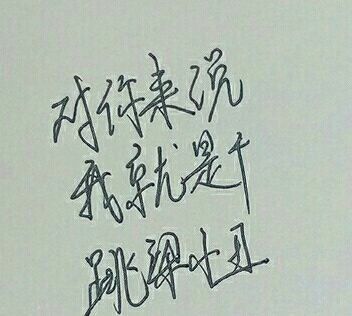 对你来说
我就是个
跳梁小丑